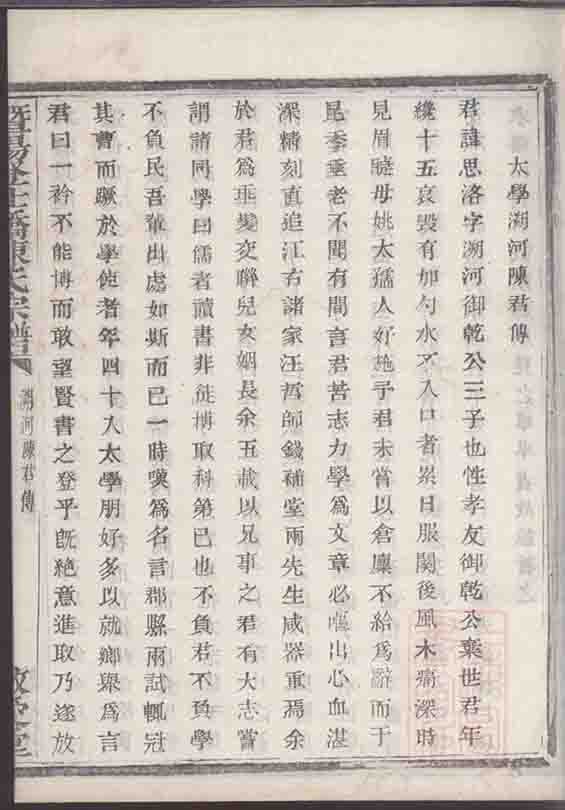 太學溯河陳君傳
君諱思洛字溯河御乾公三子也性孝友御乾公棄世君年
纔十五哀毀有加勺水不入口者累日服闋後風木痛深時
見眉睫母姚太孺人好施予君未嘗以倉廪不給爲辭而于
昆季垂老不聞有間言君苦志力學爲文章必嘔出心血湛
深精刻直追江右諸家汪哲師錢補堂兩先生咸器重焉余
於君爲垂髫交聯兒女姻長余五載以兄事之君有大志嘗
謂諸同學曰儒者讀書非徒摶取科第已也不負君不負學
不負民吾輩出處如斯而已一時嘆爲名言郡縣兩試輒冠
其曹而蹶於學使者年四十入太學朋好多以就鄉舉爲言
君曰一衿不能博而敢望賢書之登乎旣絶意進取乃遂放
溯河陳君傳